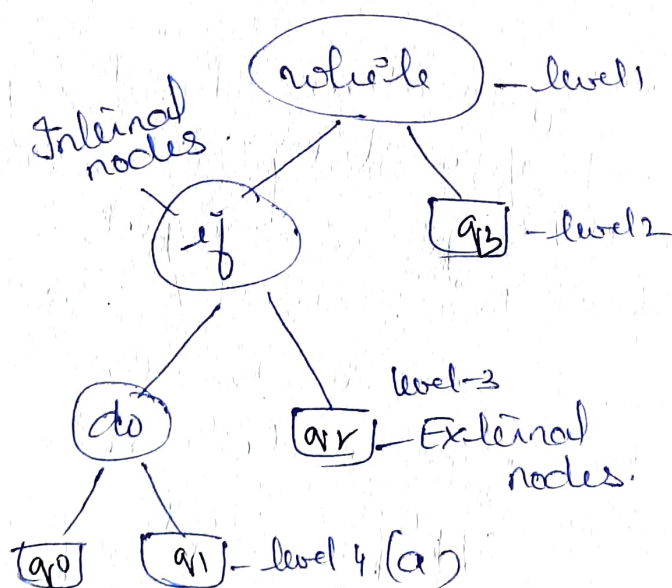 while - level 1
Internal
nodes.
if
q3 - level 2
level-3
do
q2 - External
nodes.
q0
q1 - level 4 (a)